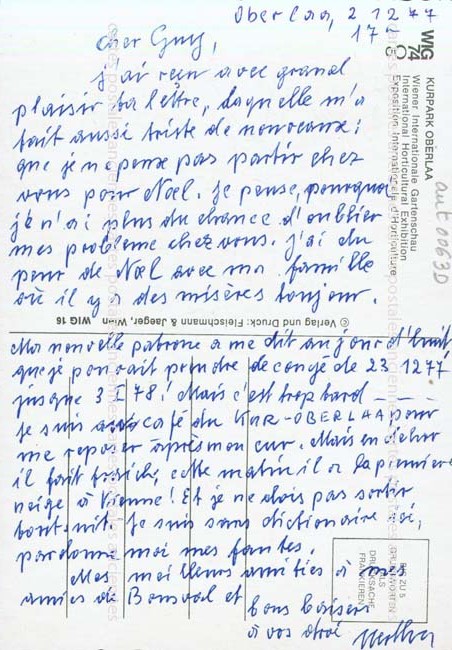 Oberlaa, 2 12 77
17
cher Guy,
j'ai reçu avec grand
plaisir ta lettre, laquelle m'a
fait aussi triste de nouveaux:
que je ne peux pas partir chez
vous pour Noel. Je pense, pourquoi
je n'ai plus du chance d'oublier
mes probleme chez vous. j'ai du
peur de Noel avec ma famille
où il y a des misères toujour.
Ma nouvelle patrone a me dit aujour d'huit,
que je pouvait prendre de congé de 23 12 77
jusque 3 I 78! Mais c'est trop tard - - -
je suis au café du KUR-OBERLAA pour
me reposer après mon cur. Mais en dehor
il fait fraiche, cette matin il a la premiere
neige à Vienne! Et je ne dois pas sortir
tout suit. Je suis sans dictionaire ici,
pardonne moi mes fautes.
Mes meilleurs amities à mes
amies de Bonval et
bons baisers
à vos
WIG 74
KURPARK OBERLAA
Wiener Internationale Gartenschau
International Horticultural Exhibition
Exposition Internationale d'Horticulture
aut0063D
© Verlag und Druck: Fleischmann & Jaeger, Wien WIG 16
BIS ZU 5
GRUSSWORTEN
ALS
DRUCKSACHE
FRANKIEREN